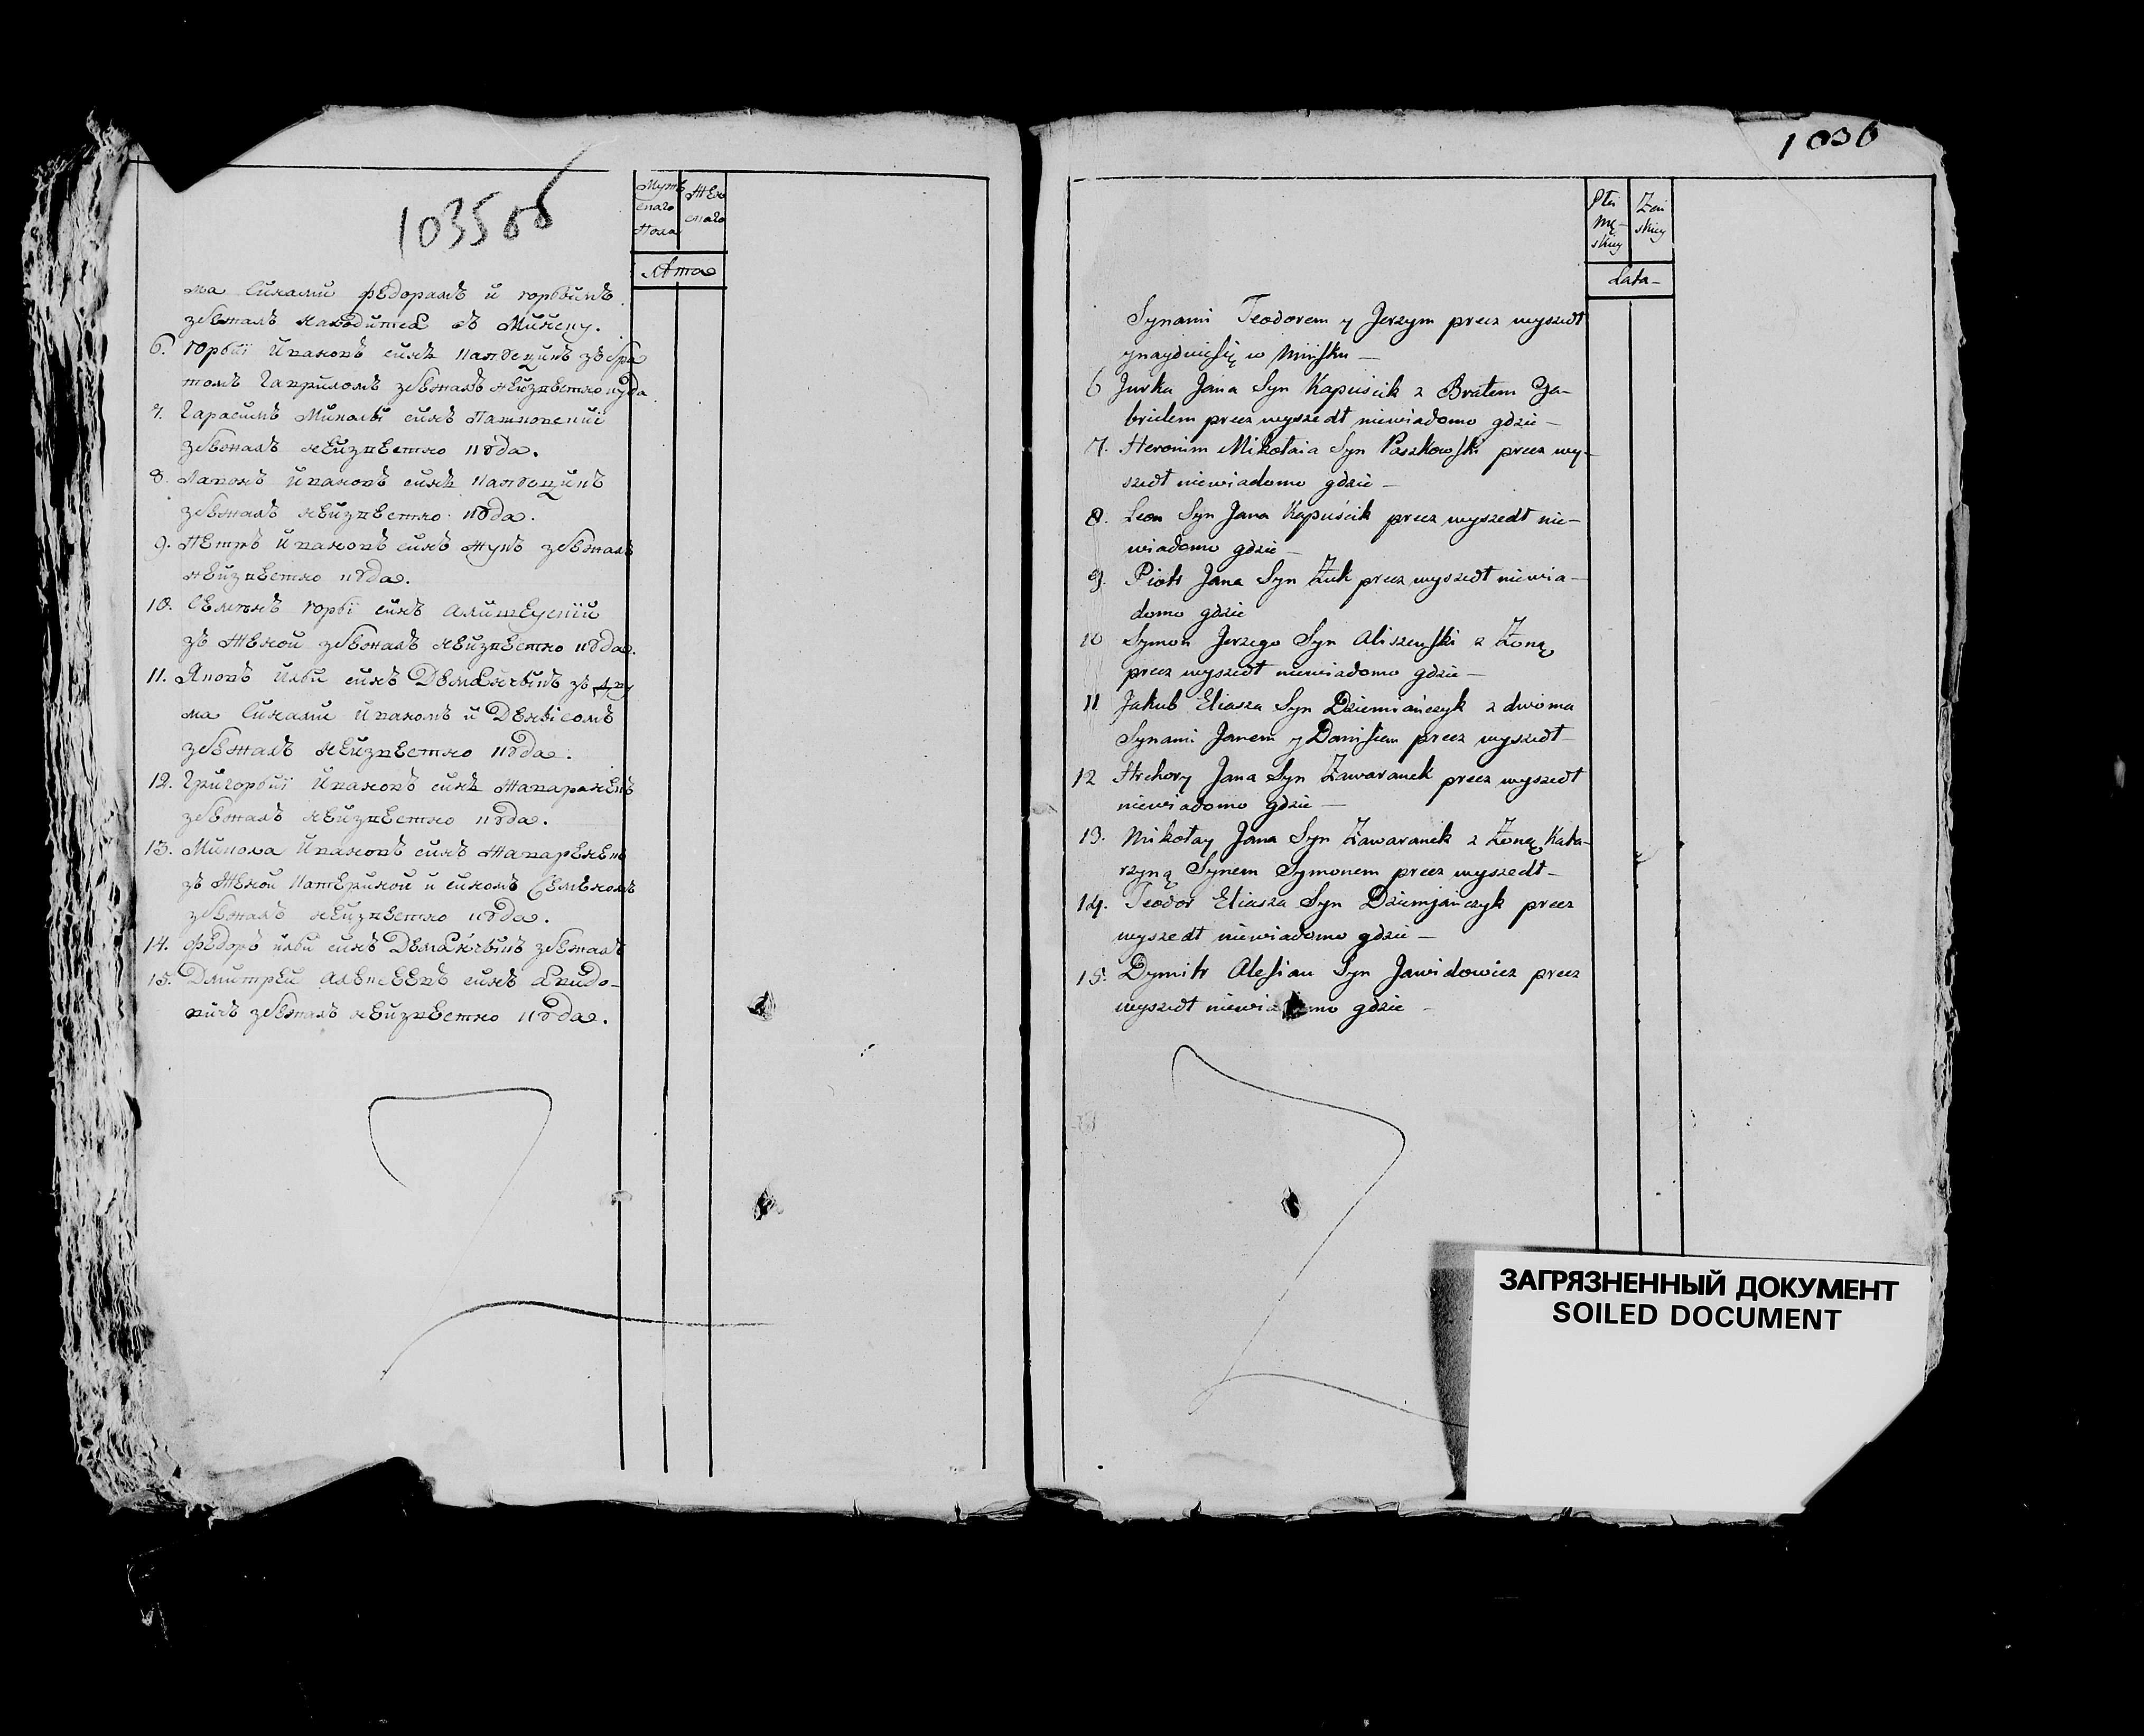 1035об
Мужескаго Пола
Женскаго
Лѣта
ма Синами Федорамъ и Горбіимъ
збежалъ находитса въ Минску.
6. Юрьій Ивановъ синъ Капусцикъ зъ бра
томъ Гавриломъ збежалъ неизвестно куда
7. Гарасимъ Миколы синъ Пашковский
збежалъ неизвестно куда.
8. Лавонъ Ивановъ синъ Капусцикъ
збежалъ неизвестно куда.
9. Петръ Ивановъ синъ Жукъ збежалъ
неизвестно куда.
10. Семенъ Юрьі синъ Алишевский
зъ Женой збежалъ неизвестно куда.
11. Яковъ Ильи синъ Демянчыкъ зъ дву
ма Синами Иваномъ и Денісомъ
збежалъ неизвестно куда.
12. Григорьій Ивановъ синъ Жаваранекъ
збежалъ неизвестно куда.
13. Микола Ивановъ синъ Жаваренекъ
зъ Женой Катериной и синомъ Семеномъ
збежалъ неизвестно куда.
14. Федоръ ильи синъ Демянчыкъ збежалъ
15. Дмитрей Алексеевъ синъ Явидо-
вичъ збежалъ неизвестно куда.
1036
Płci Męskiey
Żeńskiey
Lata-
Synami Teodorem y Jerzym precz wyszedł
znayduiesię w Mińsku —
6 Jurka Jana Syn Kapuścik z Bratem Ga-
brielem precz wyszedł niewiadomo gdzie —
7. Heronim Mikołaia Syn Paszkowski precz wy-
szedł niewiadomo gdzie —
8. Leon Syn Jana Kapuścik precz wyszedł nie-
wiadomo gdzie —
9. Piotr Jana Syn Żuk precz wyszedł niewia-
domo gdzie
10 Symon Jerzego Syn Aliszewski z Żoną
precz wyszedł niewiadomo gdzie —
11 Jakub Eliasza Syn Dziemiańczyk z dwoma
Synami Janem y Danisiem precz wyszedł
12 Hrehory Jana Syn Żawaranek precz wyszedł
niewiadomo gdzie —
13. Mikołay Jana Syn Żawaranek z Żoną Kata-
rzyną Synem Symonem precz wyszedł-
14. Teodor Eliasza Syn Dziemjańczyk precz
wyszedł niewiadomo gdzie —
15. Dymitr Alesiau Syn Jawidowicz precz
wyszedł niewiadomo gdzie -
ЗАГРЯЗНЕННЫЙ ДОКУМЕНТ
SOILED DOCUMENT